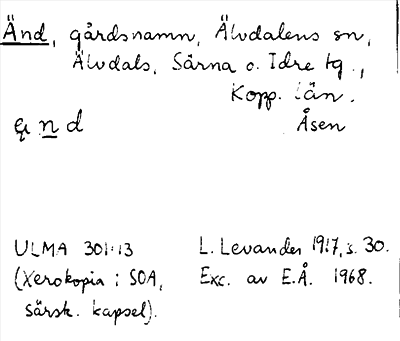 Änd, gårdsnamn, Älvdalens sn,
Älvdals, Särna o. Idre tg.,
Kopp. län.
n d
Åsen
ULMA 301:13
(Xerokopia i SOA,
särsk. kapsel).
L. Levander 1917, s. 30.
Exc. av E.Å. 1968.